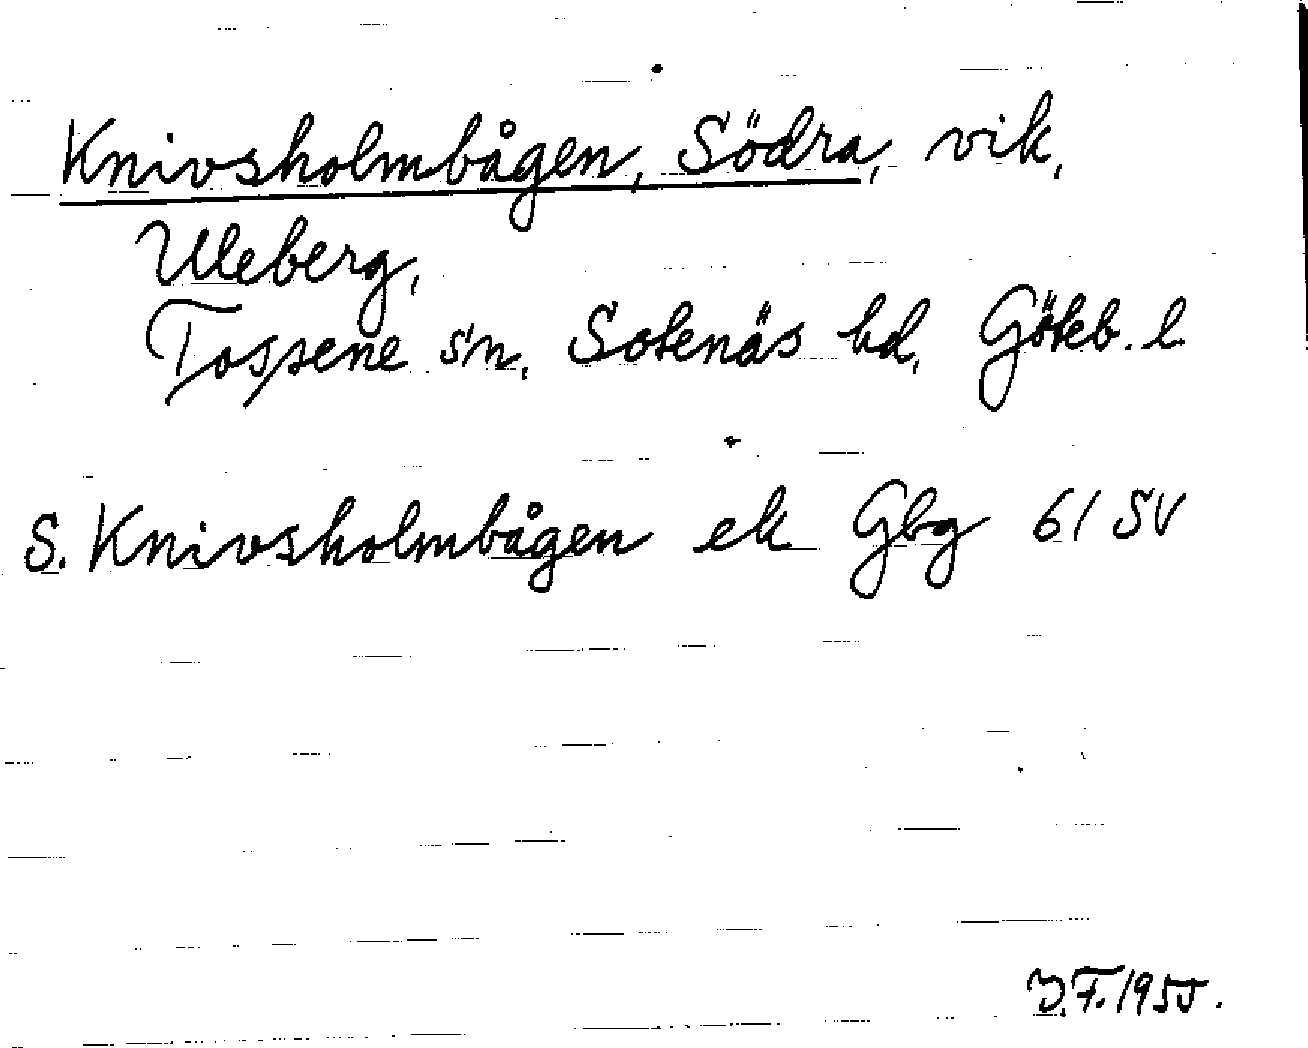 Knivsholmbågen, Södra, vik,
Uleberg,
Tossene sn, Sotenäs hd, Göteb. l.
S. Knivsholmbågen ek Gbg 61 SV
J.F. 1955.